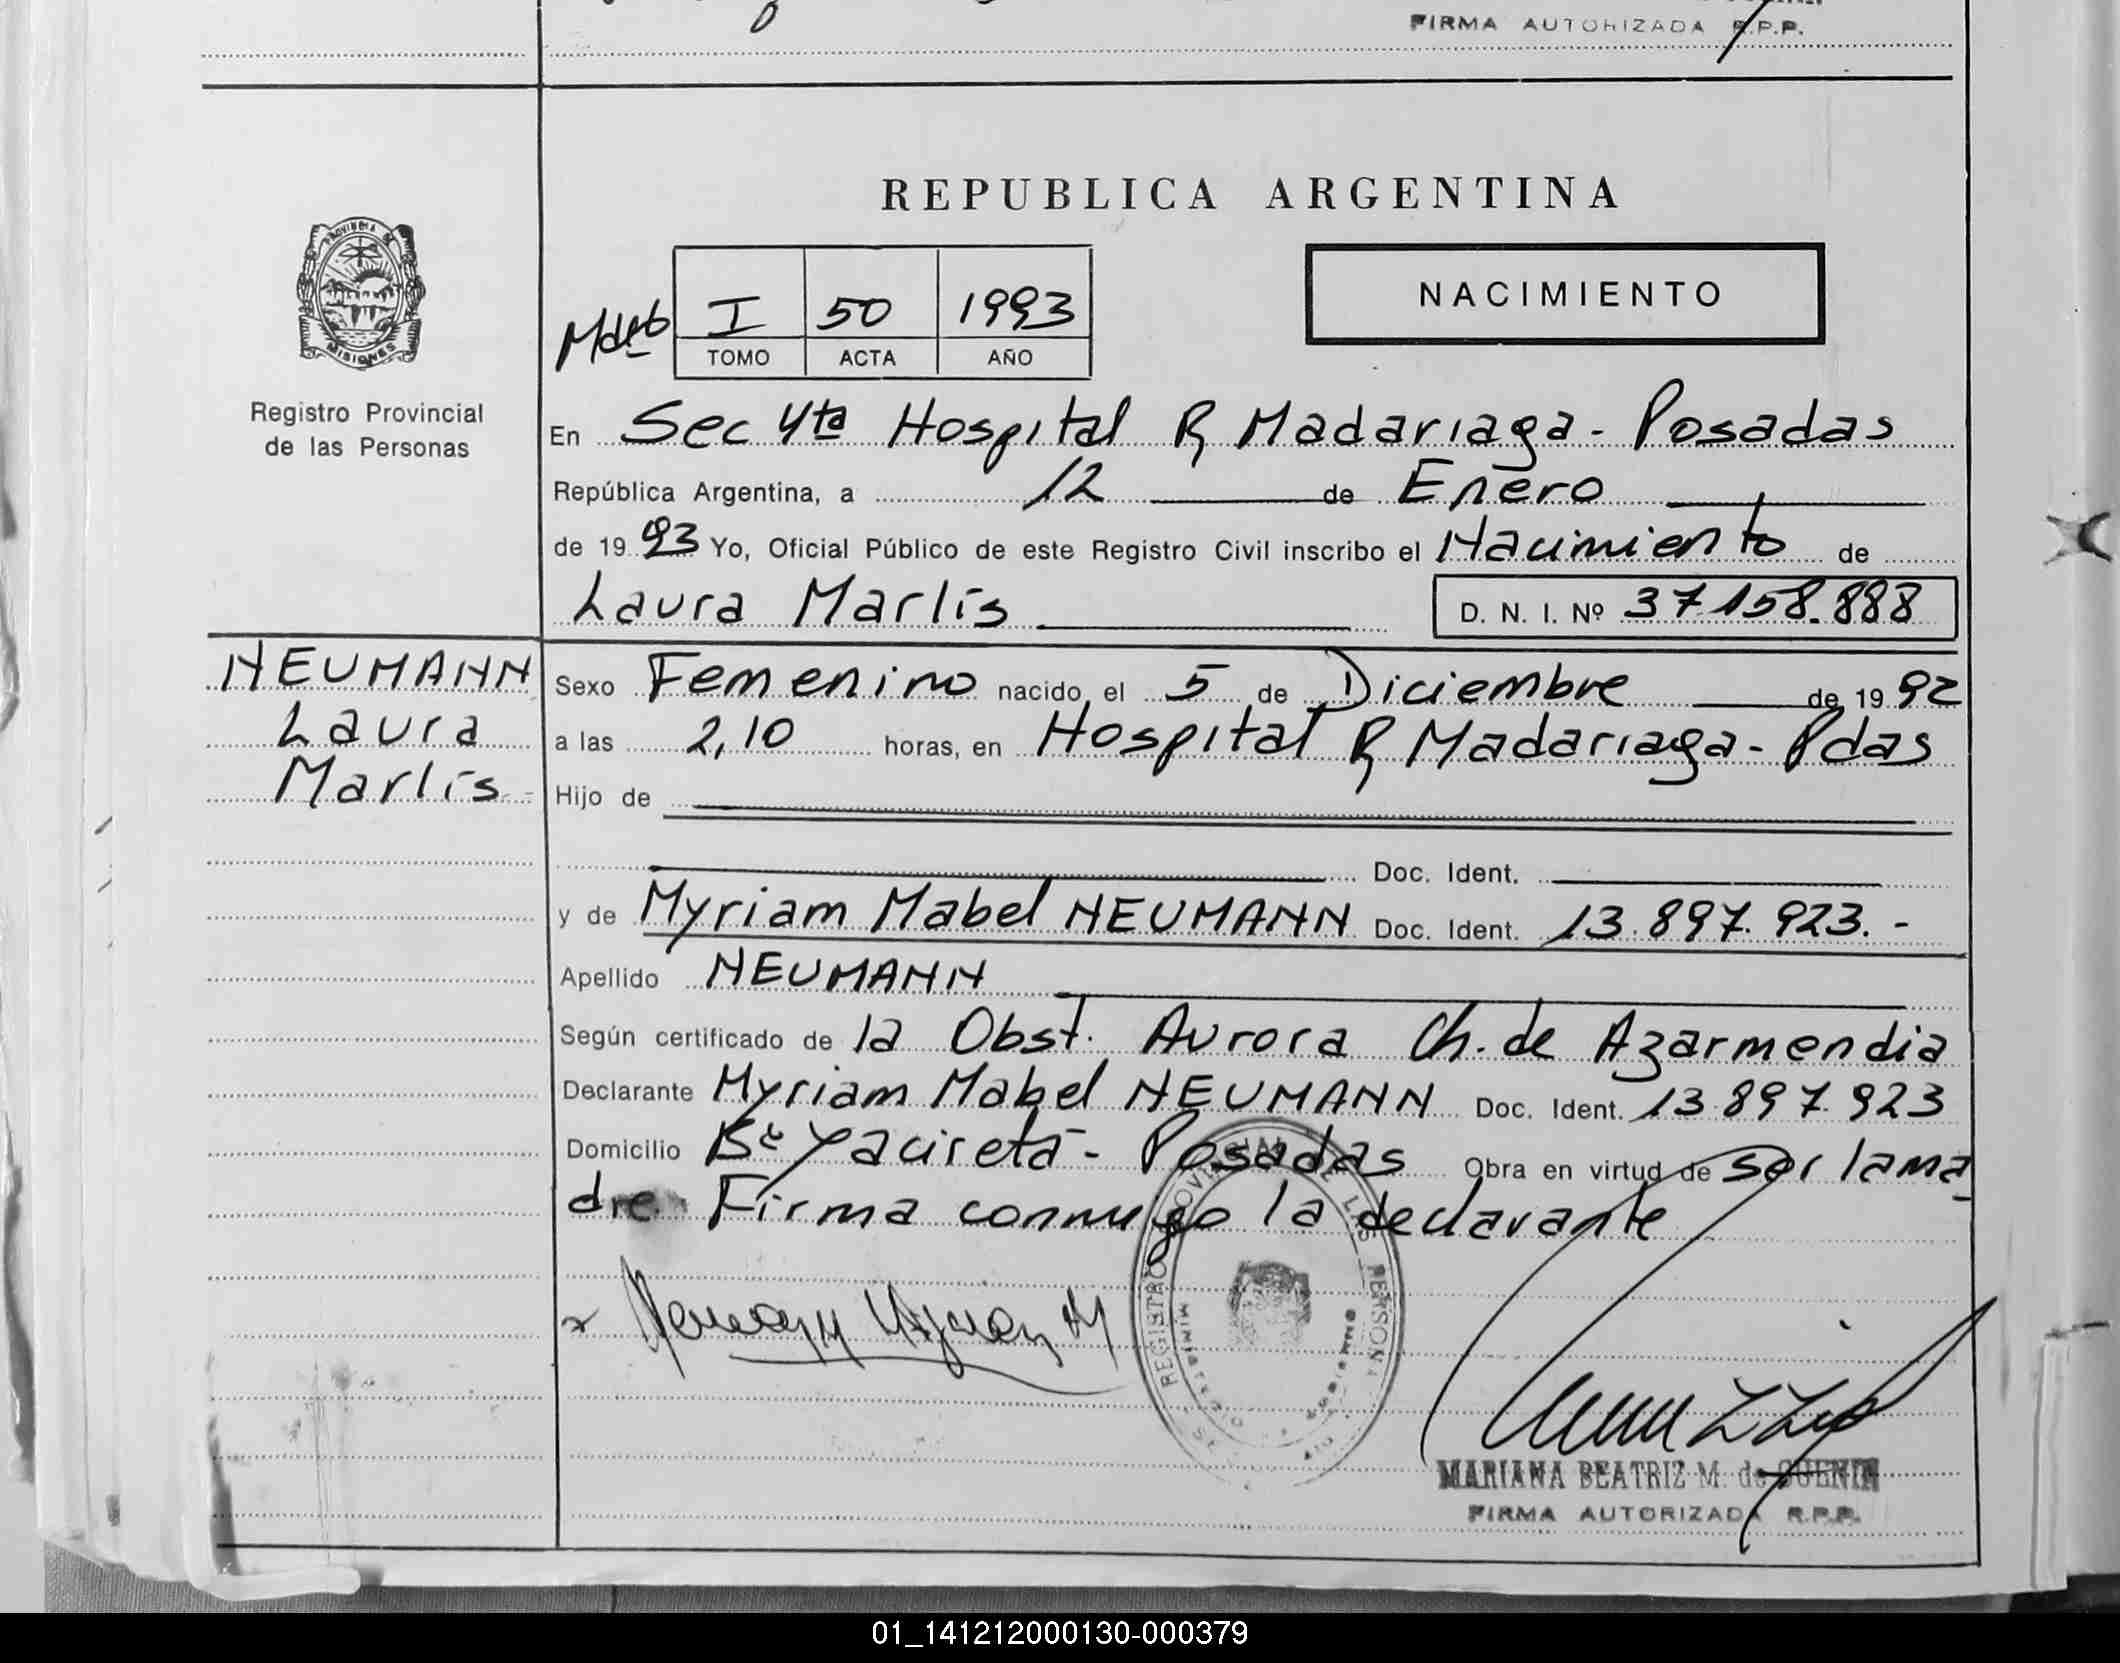 FIRMA AUTORIZADA R.P.P.
REPUBLICA ARGENTINA
PROVINCIA DE
MISIONES
Registro Provincial
de las Personas
I 50 1993
TOMO ACTA AÑO
NACIMIENTO
En Sec 4ta Hospital R Madariaga - Posadas
República Argentina, a 12 de Enero
de 1993 Yo, Oficial Público de este Registro Civil inscribo el Nacimiento de
Laura Marlís D. N. I. Nº 37.158.888
NEUMANN
Laura
Marlís -
Sexo Femenino nacido el 5 de Diciembre de 1992
a las 2,10 horas, en Hospital R Madariaga - Pdas
Hijo de
Doc. Ident.
y de Myriam Mabel NEUMANN Doc. Ident. 13.897.923. -
Apellido NEUMANN
Según certificado de la Obst. Aurora Ch. de Azarmendia
Declarante Myriam Mabel NEUMANN Doc. Ident. 13.897.923
Domicilio Bº Yacireta - Posadas Obra en virtud de ser la ma
dre. Firma conmigo la declarante
REGISTRO PROVINCIAL DE LAS PERSONAS
MARIANA BEATRIZ M. de GUENIN
FIRMA AUTORIZADA R.P.P.
01_141212000130-000379